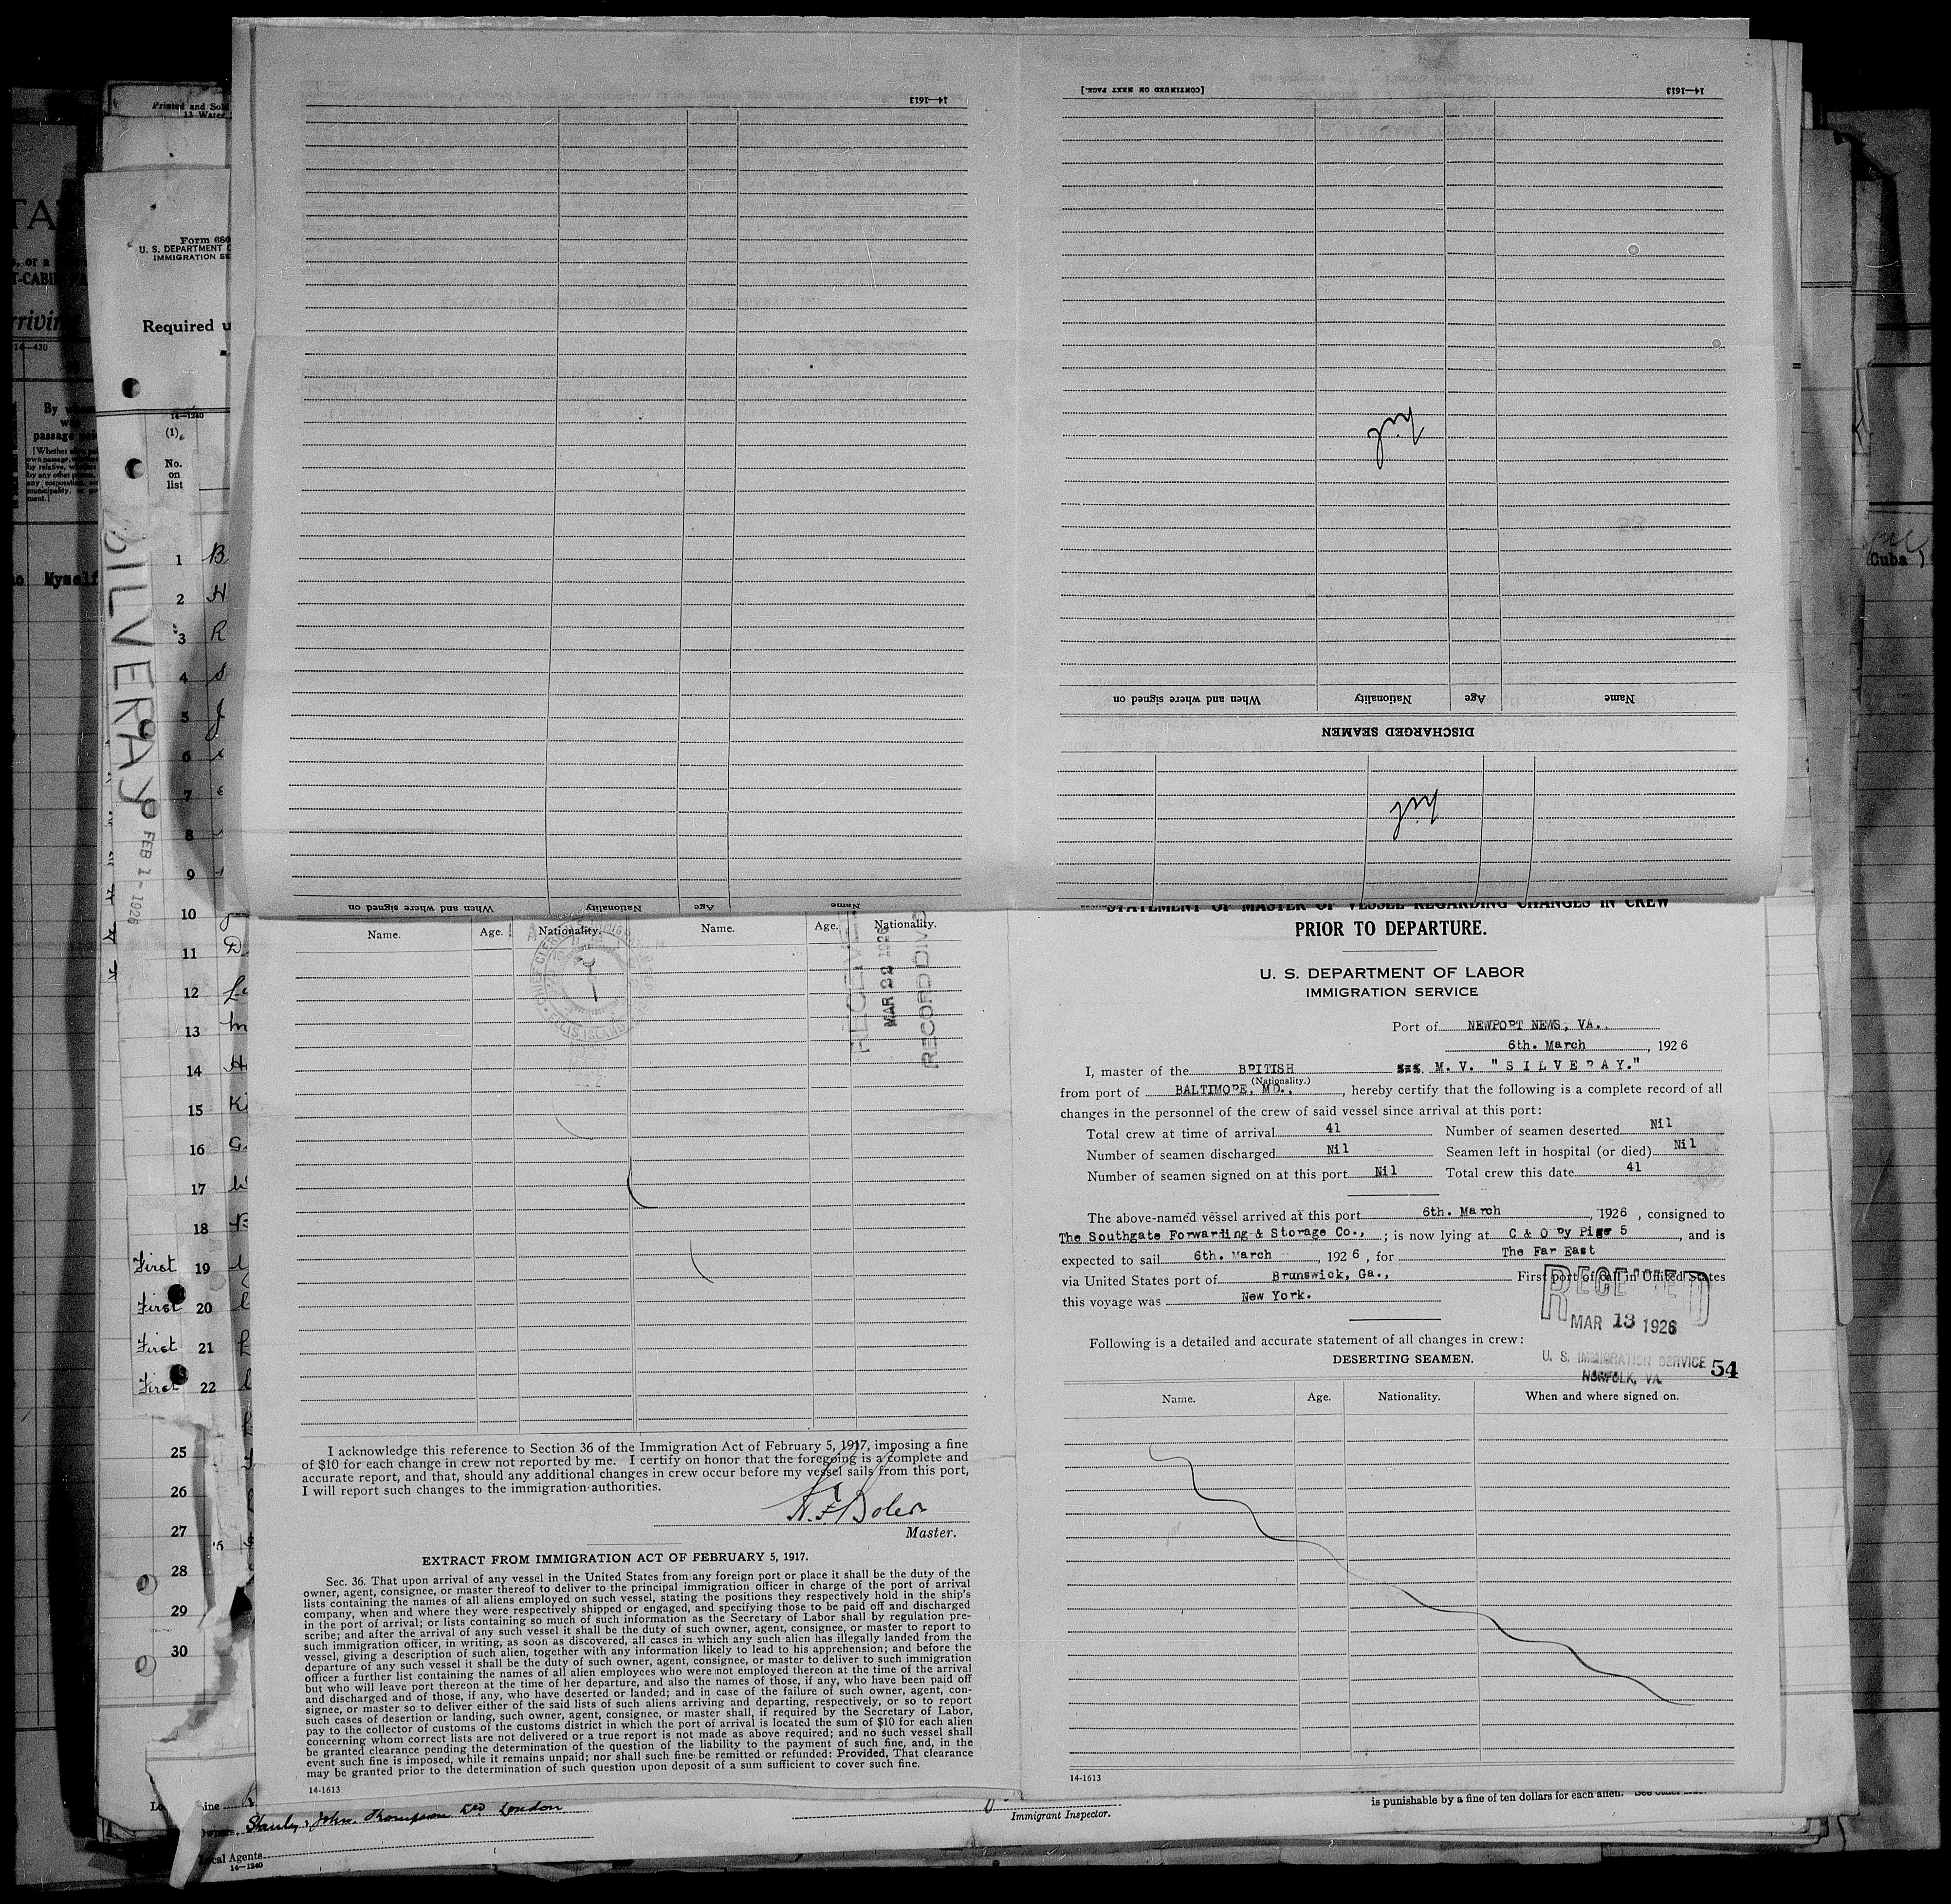 Printed and Sold
13 Water
Form 680
U. S. DEPARTMENT
IMMIGRATION SE
Required u
14-1240
(1)
No.
on
list
1 B
2 H
3 R
4 S
5 J
6
7
8
9
10
11 D
12
13
14
15 Ki
16 G.
17
18
First 19
First 20
First 21
First 22
25
26
27
28
29
30
SILVERAY
FEB 1-1926
14—430
By
passage
Myself
Cuba)
14—1613
When and where signed on
Nationality
Age
Name
[CONTINUED ON NEXT PAGE.]
14—1613
Nil
Name
Age
Nationality
When and where signed on
DISCHARGED SEAMEN
Nil
Name. Age. Nationality. Name. Age. Nationality.
RECEIVED
MAR 22 1926
RECORD DIV
I acknowledge this reference to Section 36 of the Immigration Act of February 5, 1917, imposing a fine
of $10 for each change in crew not reported by me. I certify on honor that the foregoing is a complete and
accurate report, and that, should any additional changes in crew occur before my vessel sails from this port,
I will report such changes to the immigration authorities.
Master.
EXTRACT FROM IMMIGRATION ACT OF FEBRUARY 5, 1917.
Sec. 36. That upon arrival of any vessel in the United States from any foreign port or place it shall be the duty of the
owner, agent, consignee, or master thereof to deliver to the principal immigration officer in charge of the port of arrival
lists containing the names of all aliens employed on such vessel, stating the positions they respectively hold in the ship's
company, when and where they were respectively shipped or engaged, and specifying those to be paid off and discharged
in the port of arrival; or lists containing so much of such information as the Secretary of Labor shall by regulation pre-
scribe; and after the arrival of any such vessel it shall be the duty of such owner, agent, consignee, or master to report to
such immigration officer, in writing, as soon as discovered, all cases in which any such alien has illegally landed from the
vessel, giving a description of such alien, together with any information likely to lead to his apprehension; and before the
departure of any such vessel it shall be the duty of such owner, agent, consignee, or master to deliver to such immigration
officer a further list containing the names of all alien employees who were not employed thereon at the time of the arrival
but who will leave port thereon at the time of her departure, and also the names of those, if any, who have been paid off
and discharged and of those, if any, who have deserted or landed; and in case of the failure of such owner, agent, con-
signee, or master so to deliver either of the said lists of such aliens arriving and departing, respectively, or so to report
such cases of desertion or landing, such owner, agent, consignee, or master shall, if required by the Secretary of Labor,
pay to the collector of customs of the customs district in which the port of arrival is located the sum of $10 for each alien
concerning whom correct lists are not delivered or a true report is not made as above required; and no such vessel shall
be granted clearance pending the determination of the question of the liability to the payment of such fine, and, in the
event such fine is imposed, while it remains unpaid; nor shall such fine be remitted or refunded: Provided, That clearance
may be granted prior to the determination of such question upon deposit of a sum sufficient to cover such fine.
14-1613
STATEMENT OF MASTER OF VESSEL REGARDING CHANGES IN CREW
PRIOR TO DEPARTURE.
U. S. DEPARTMENT OF LABOR
IMMIGRATION SERVICE
Port of NEWPORT NEWS, VA.
6th. March, 1926
I, master of the BRITISH M.V. "SILVERAY."
(Nationality.)
from port of BALTIMORE, MD., , hereby certify that the following is a complete record of all
changes in the personnel of the crew of said vessel since arrival at this port:
Total crew at time of arrival 41 Number of seamen deserted Nil
Number of seamen discharged Nil Seamen left in hospital (or died) Nil
Number of seamen signed on at this port Nil Total crew this date 41
The above-named vessel arrived at this port 6th. March, 1926, consigned to
The Southgate Forwarding & Storage Co., ; is now lying at C & O Ry Pier 5, and is
expected to sail 6th. March, 1926, for The Far East
via United States port of Brunswick, Ga., First port of call in United States
this voyage was New York.
RECEIVED
MAR 13 1926
U. S. IMMIGRATION SERVICE
NORFOLK, VA.
54
Following is a detailed and accurate statement of all changes in crew:
DESERTING SEAMEN.
Name. Age. Nationality. When and where signed on.
14-1613
is punishable by a fine of ten dollars for each alien.
Immigrant Inspector.
Owners. Stanley, John Thompson Ltd London
Local Agents
14—1240